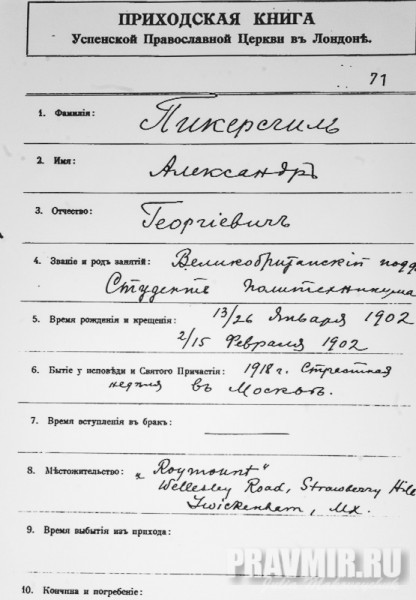 ПРИХОДСКАЯ КНИГА
Успенской Православной Церкви въ Лондонѣ.
71
1. Фамилія: Пикерсгиль
2. Имя: Александръ
3. Отчество: Георгіевичъ
4. Званіе и родъ занятій: Великобританскій подд
Студентъ политехникума
5. Время рожденія и крещенія: 13/26 Января 1902
2/15 Февраля 1902
6. Бытіе у исповѣди и Святого Причастія: 1918 г. Страстная
недѣля въ Москвѣ.
7. Время вступленія въ бракъ:
8. Мѣстожительство: „Roymount"
Wellesley Road, Strawberry Hill
Twickenham, Mx.
9. Время выбытія изъ прихода:
PRAVMIR.RU
10. Кончина и погребеніе: